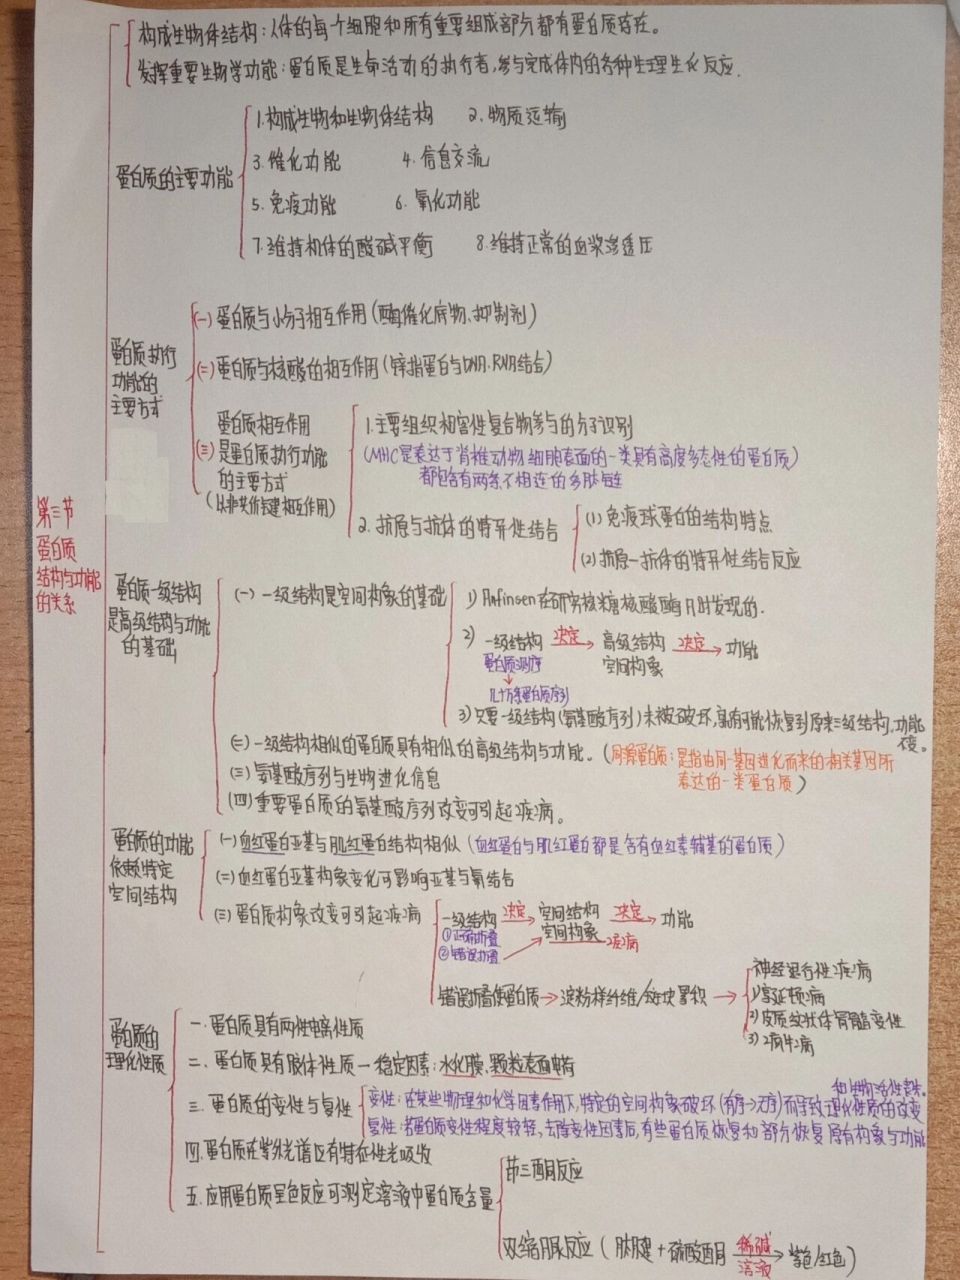 第三节
蛋白质
结构与功能
的关系
构成生物体结构：人体的每个细胞和所有重要组成部分都有蛋白质存在。
发挥重要生物学功能：蛋白质是生命活动的执行者，参与完成体内的各种生理生化反应.
蛋白质的主要功能
1.构成生物和生物体结构 2.物质运输
3.催化功能 4.信息交流
5.免疫功能 6.氧化功能
7.维持机体的酸碱平衡 8.维持正常的血浆渗透压
蛋白质执行
功能的
主要方式
(一)蛋白质与小分子相互作用(酶催化底物、抑制剂)
(二)蛋白质与核酸的相互作用(锌指蛋白与DNA.RNA结合)
蛋白质相互作用
(三)是蛋白质执行功能
的主要方式
(以非共价键相互作用)
1.主要组织相容性复合物参与的分子识别
(MHC是表达于脊椎动物细胞表面的一类具有高度多态性的蛋白质)
都包含有两条不相连的多肽链
2.抗原与抗体的特异性结合
(1)免疫球蛋白的结构特点
(2)抗原—抗体的特异性结合反应
蛋白质一级结构
是高级结构与功能
的基础
(一)一级结构是空间构象的基础
1)Anfinsen在研究核糖核酸酶A时发现的.
2)一级结构 决定→ 高级结构 决定→ 功能
蛋白质测序 空间构象
↓
几十万条蛋白质序列
3)只要一级结构(氨基酸序列)未被破坏,就有可能恢复到原来三级结构,功能
不变。
(二)一级结构相似的蛋白质具有相似的高级结构与功能。(同源蛋白质：是指由同一基因进化而来的相关基因所
表达的一类蛋白质)
(三)氨基酸序列与生物进化信息
(四)重要蛋白质的氨基酸序列改变可引起疾病。
蛋白质的功能
依赖特定
空间结构
(一)血红蛋白亚基与肌红蛋白结构相似(血红蛋白与肌红蛋白都是含有血红素辅基的蛋白质)
(二)血红蛋白亚基构象变化可影响亚基与氧结合
(三)蛋白质构象改变可引起疾病
一级结构 决定→ 空间结构 决定→ 功能
①正确折叠 空间构象 疾病
②错误折叠
错误折叠使蛋白质→淀粉样纤维/斑块累积→
神经退行性疾病
1)亨廷顿病
2)皮质纹状体脊髓变性
3)疯牛病
蛋白质的
理化性质
一.蛋白质具有两性电离性质
二.蛋白质具有胶体性质—稳定因素:水化膜,颗粒表面电荷
三.蛋白质的变性与复性
变性：在某些物理和化学因素作用下,特定的空间构象破坏(有序→无序)而导致理化性质的改变
和生物活性丧失.
复性：若蛋白质变性程度较轻,去除变性因素后,有些蛋白质恢复和部分恢复原有构象与功能
四.蛋白质在紫外光谱区有特征性光吸收
五.应用蛋白质呈色反应可测定溶液中蛋白质含量
茚三酮反应
双缩脲反应(肽键+硫酸酮 稀碱溶液→ 紫色/红色)